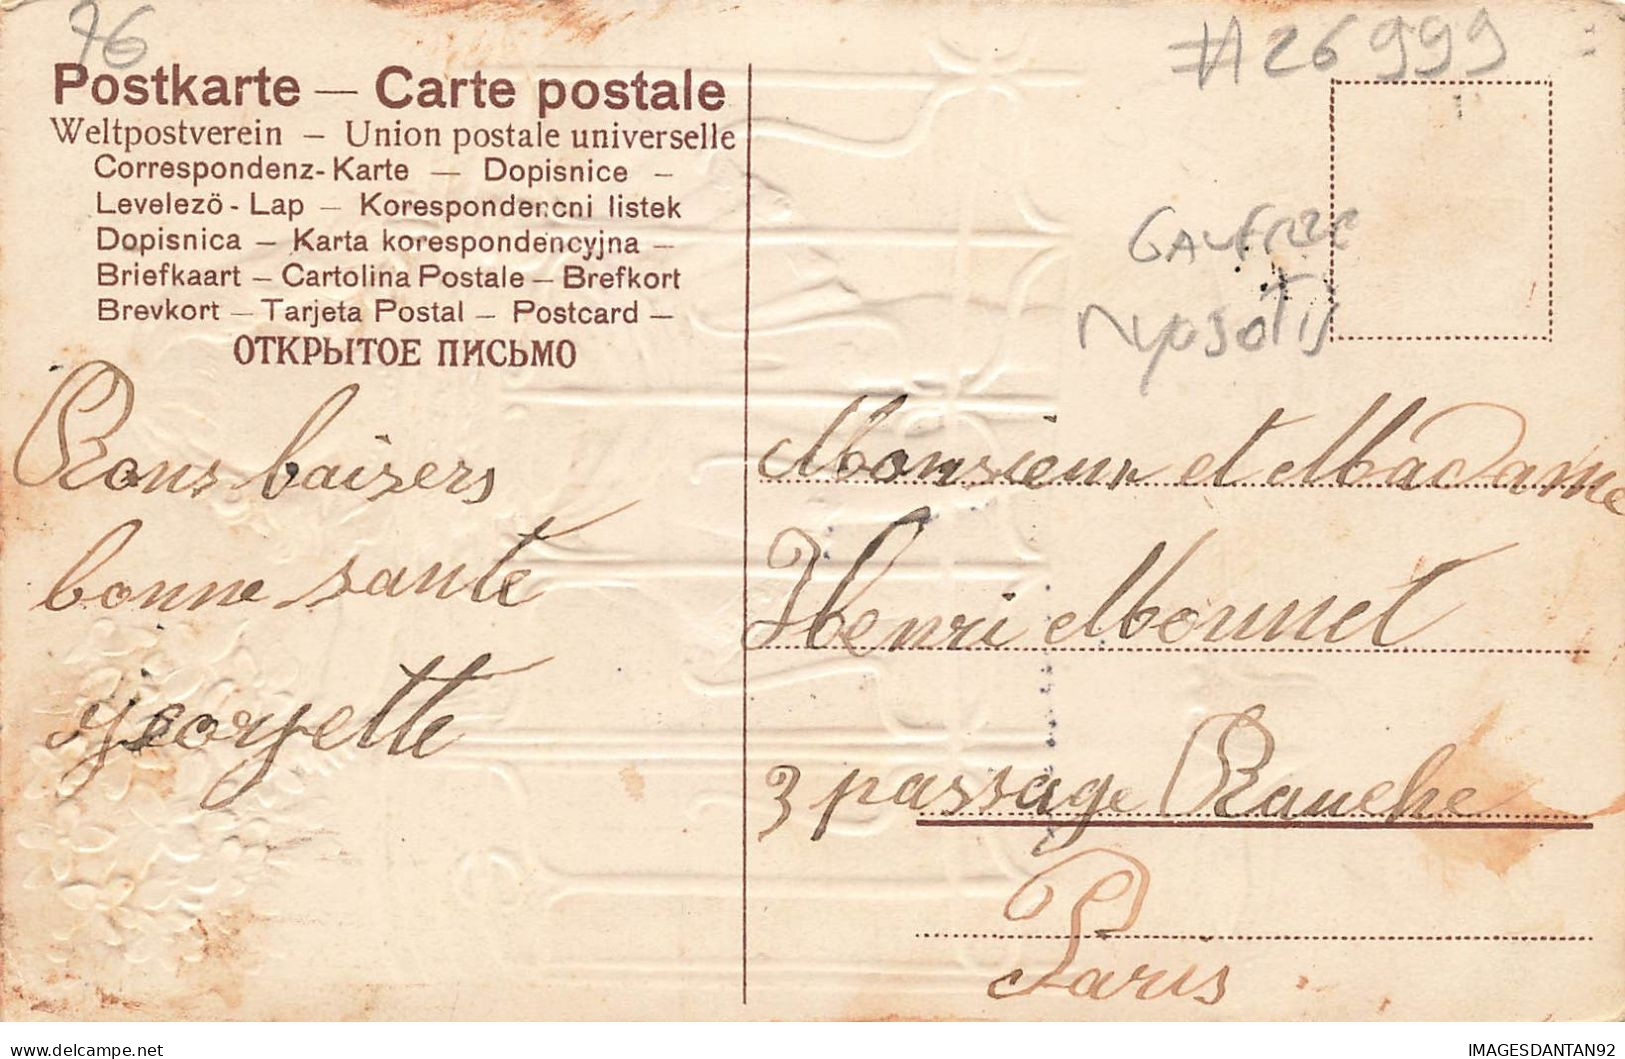 76
#26999
Postkarte — Carte postale
Weltpostverein — Union postale universelle
Correspondenz-Karte — Dopisnice —
Levelezö-Lap — Korespondencni listek
Dopisnica — Karta korespondencyjna —
Briefkaart — Cartolina Postale — Brefkort
Brevkort — Tarjeta Postal — Postcard —
ОТКРЫТОЕ ПИСЬМО
GAUFREE
MYOSOTIS
Bons baisers
bonne sante
Georgette
Monsieur et Madame
Henri Monnet
3 passage Rauche
Paris
delcampe.net
IMAGESDANTAN92